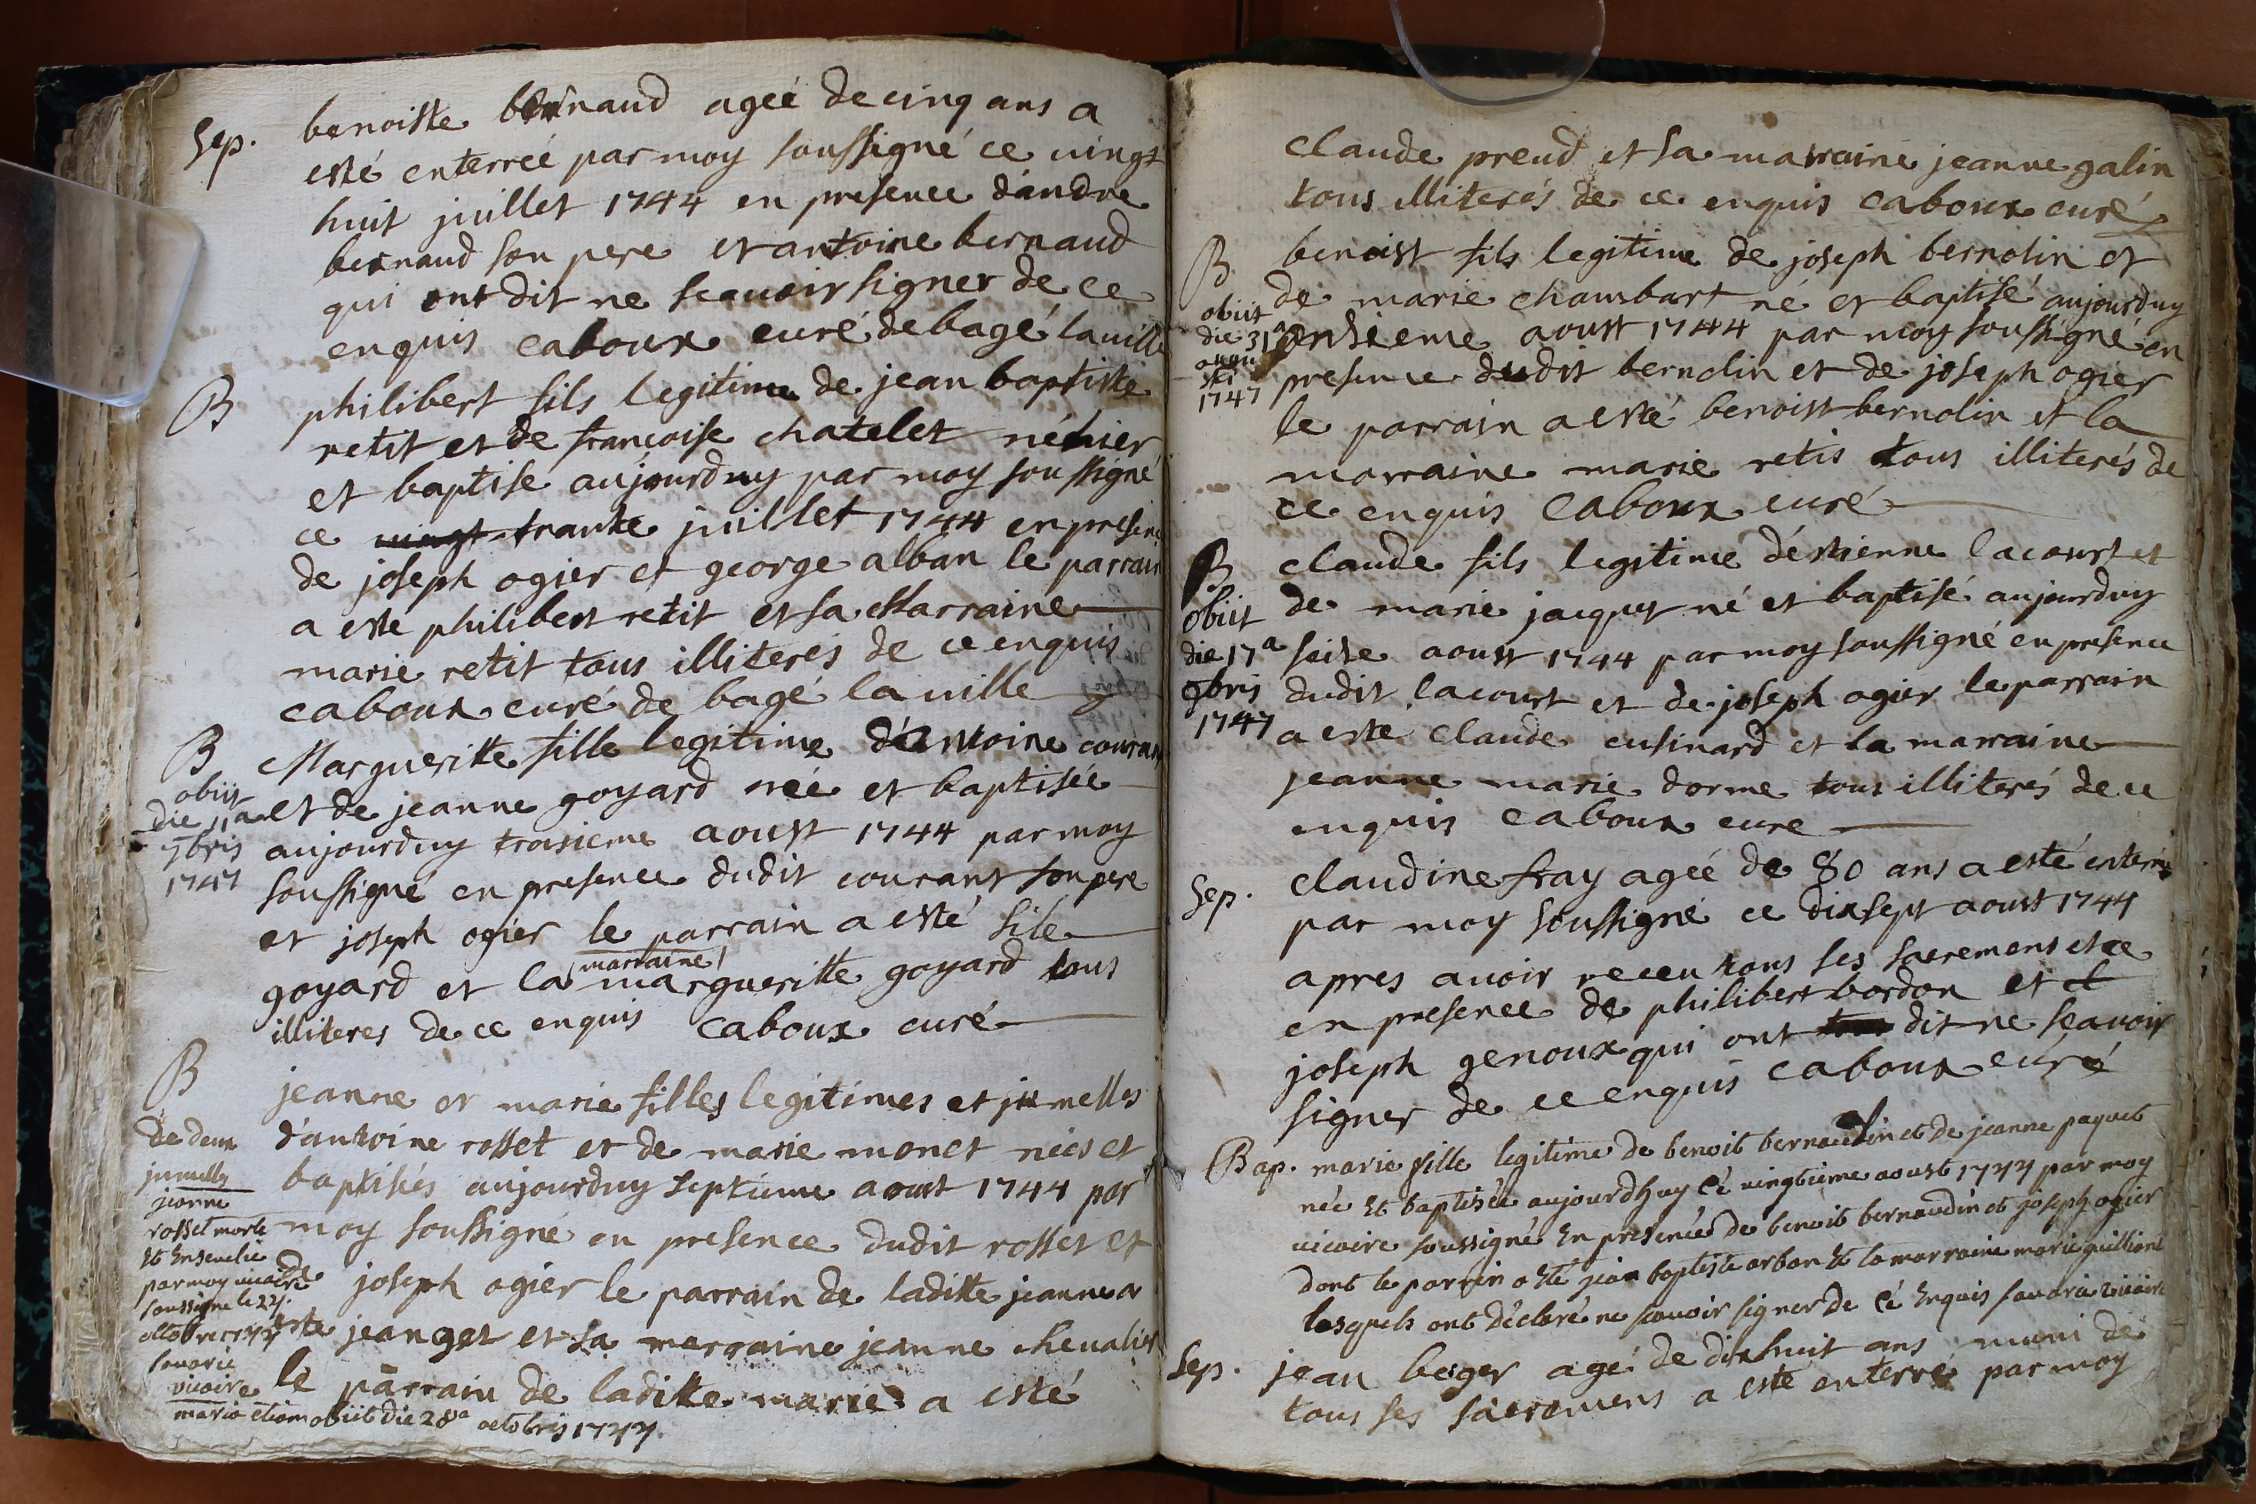 Sep.
benoiste bernaud ageé de cinq ans a
esté enterreé par moy soussigné ce vingt
huit juillet 1744 en presence dandre
bernaud son pere et antoine bernaud
qui ont dit ne scavoir signer de ce
enquis caboux curé de bagé la ville
B
philibert fils legitime de jean baptiste
retit et de francoise chatelet né hier
et baptise aujourduy par moy soussigné
ce vingt trante juillet 1744 en presence
de joseph ogier et george alban le parrain
a este philibert retit et sa Marraine
marie retit tous illiterés de ce enquis
caboux curé de bagé la ville
B
obiit
die 11a
7bris
1747
Marguerite fille legitime dantoine courant
et de jeanne goyard neé et baptiseé
aujourduy troisieme aoust 1744 par moy
soussigné en presence dudit courant son pere
et joseph ogier le parrain a esté
goyard et la marraine margueritte goyard tous
illiteres de ce enquis caboux curé
B
de deux
jumelles
jeanne
rosset morte
Et Ensevelie
par moy vicaire
soussigné le 27.
octobre 1747
savarie
vicaire
maria etiam obiit die 28a octobris 1747.
jeanne et marie filles legitimes et jumelles
d'antoine rosset et de marie monet neés et
baptiseés aujourduy septieme aoust 1744 par
moy soussigné en presence dudit rosset et
de joseph ogier le parrain de laditte jeanne a
este jean et sa marraine jeanne chevalier
le parrain de laditte marie a esté
claude preud et sa marraine jeanne galin
tous illiterés de ce enquis caboux curé
B
obiit
die 31a
augu
sti
1747
benoist fils legitime de joseph bernolin et
de marie chambart né et baptisé aujourduy
onsieme aoust 1744 par moy soussigné en
presence dudit bernolin et de joseph ogier
le parrain a esté benoist bernolin et la
marraine marie retis tous illiterés de
ce enquis caboux curé
B
obiit
die 17a
9bris
1747
claude fils legitime déstienne lacourt et
de marie jacquet né et baptisé aujourduy
seise aoust 1744 par moy soussigné en presence
dudit lacourt et de joseph ogier le parrain
a este claude cusinard et la marraine
jeanne marie dorme tous illiterés de ce
enquis caboux cure
Sep.
claudine fray ageé de 80 ans a esté enterreé
par moy soussigné ce dixsept aoust 1744
apres avoir receu tous ses sacremens et ce
en presence de philibert bordon et
joseph genoux qui ont dit ne scavoir
signer de ce enquis caboux curé
Bap. marie fille legitime de benoit bernaudin et de jeanne paquet
née Et baptisée aujourdhuy cé vingtieme aoust 1744 par moy
vicaire soussigné En presencé de benoit bernaudin et joseph ogier
dont le parrain a Eté jean baptiste arban Et la marraine marie guillion
lesquels ont déclaré ne scavoir signer de cé Enquis savarie vicaire
Sep.
jean berger agé de dixhuit ans muni de
tous ses sacremens a esté enterré par moy